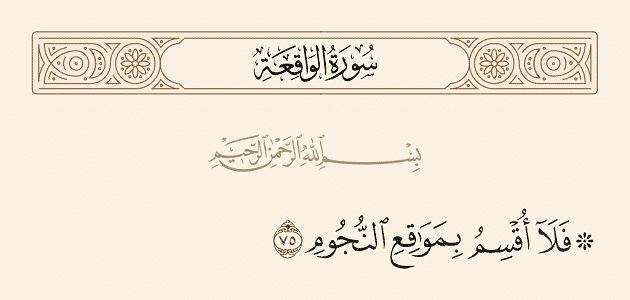 سُورَةُ الوَاقِعَةِ
بِسْمِ ٱللَّهِ ٱلرَّحْمَٰنِ ٱلرَّحِيمِ
۞ فَلَآ أُقْسِمُ بِمَوَٰقِعِ ٱلنُّجُومِ ٧٥